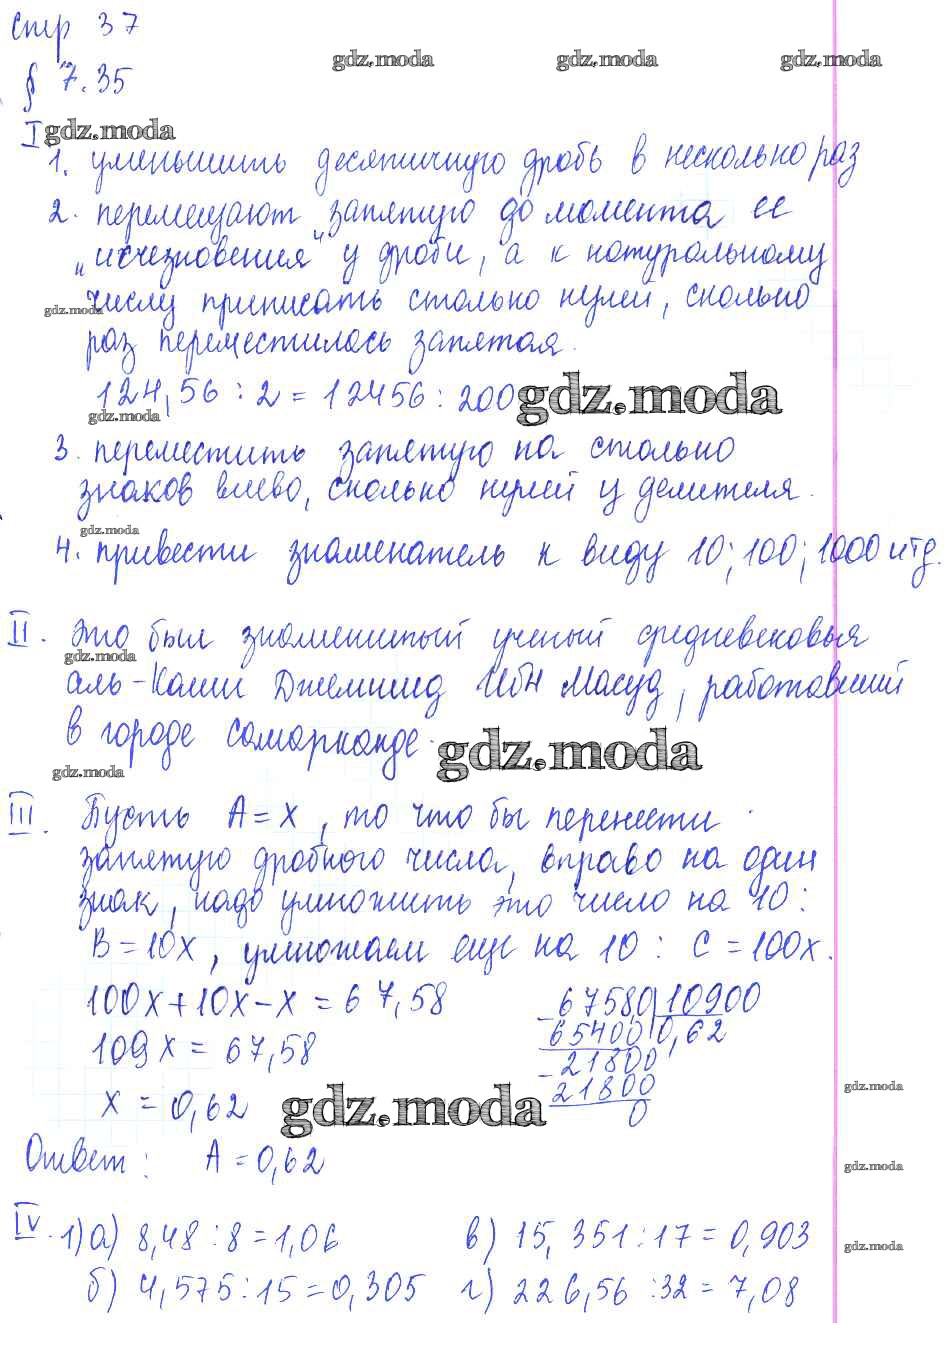 стр 37
gdz.moda gdz.moda gdz.moda
§ 7.35
I gdz.moda
1. уменьшить десятичную дробь в несколько раз
2. перемещают запятую до момента ее
„исчезновения“ у дроби, а к натуральному
числу приписать столько нулей, сколько
gdz.moda
раз переместилась запятая.
124,56 : 2 = 12456 : 200 gdz.moda
gdz.moda
3. переместить запятую на столько
знаков влево, сколько нулей у делителя.
gdz.moda
4. привести знаменатель к виду 10; 100; 1000 итд.
II. Это был знаменитый ученый средневековья
gdz.moda
аль-Каши Джемшид Ибн Масуд, работавший
в городе Самарканде. gdz.moda
gdz.moda
III. Пусть A = x, то что бы перенести
запятую дробного числа, вправо на один
знак, надо умножить это число на 10:
B = 10x, умножаем еще на 10: C = 100x.
100x + 10x - x = 67,58
109x = 67,58
x = 0,62
67580,0 10900
65400 0,62
21800
21800
0
gdz.moda
gdz.moda
Ответ: A = 0,62
gdz.moda
IV. 1) а) 8,48 : 8 = 1,06 в) 15,351 : 17 = 0,903
gdz.moda
б) 4,575 : 15 = 0,305 г) 226,56 : 32 = 7,08